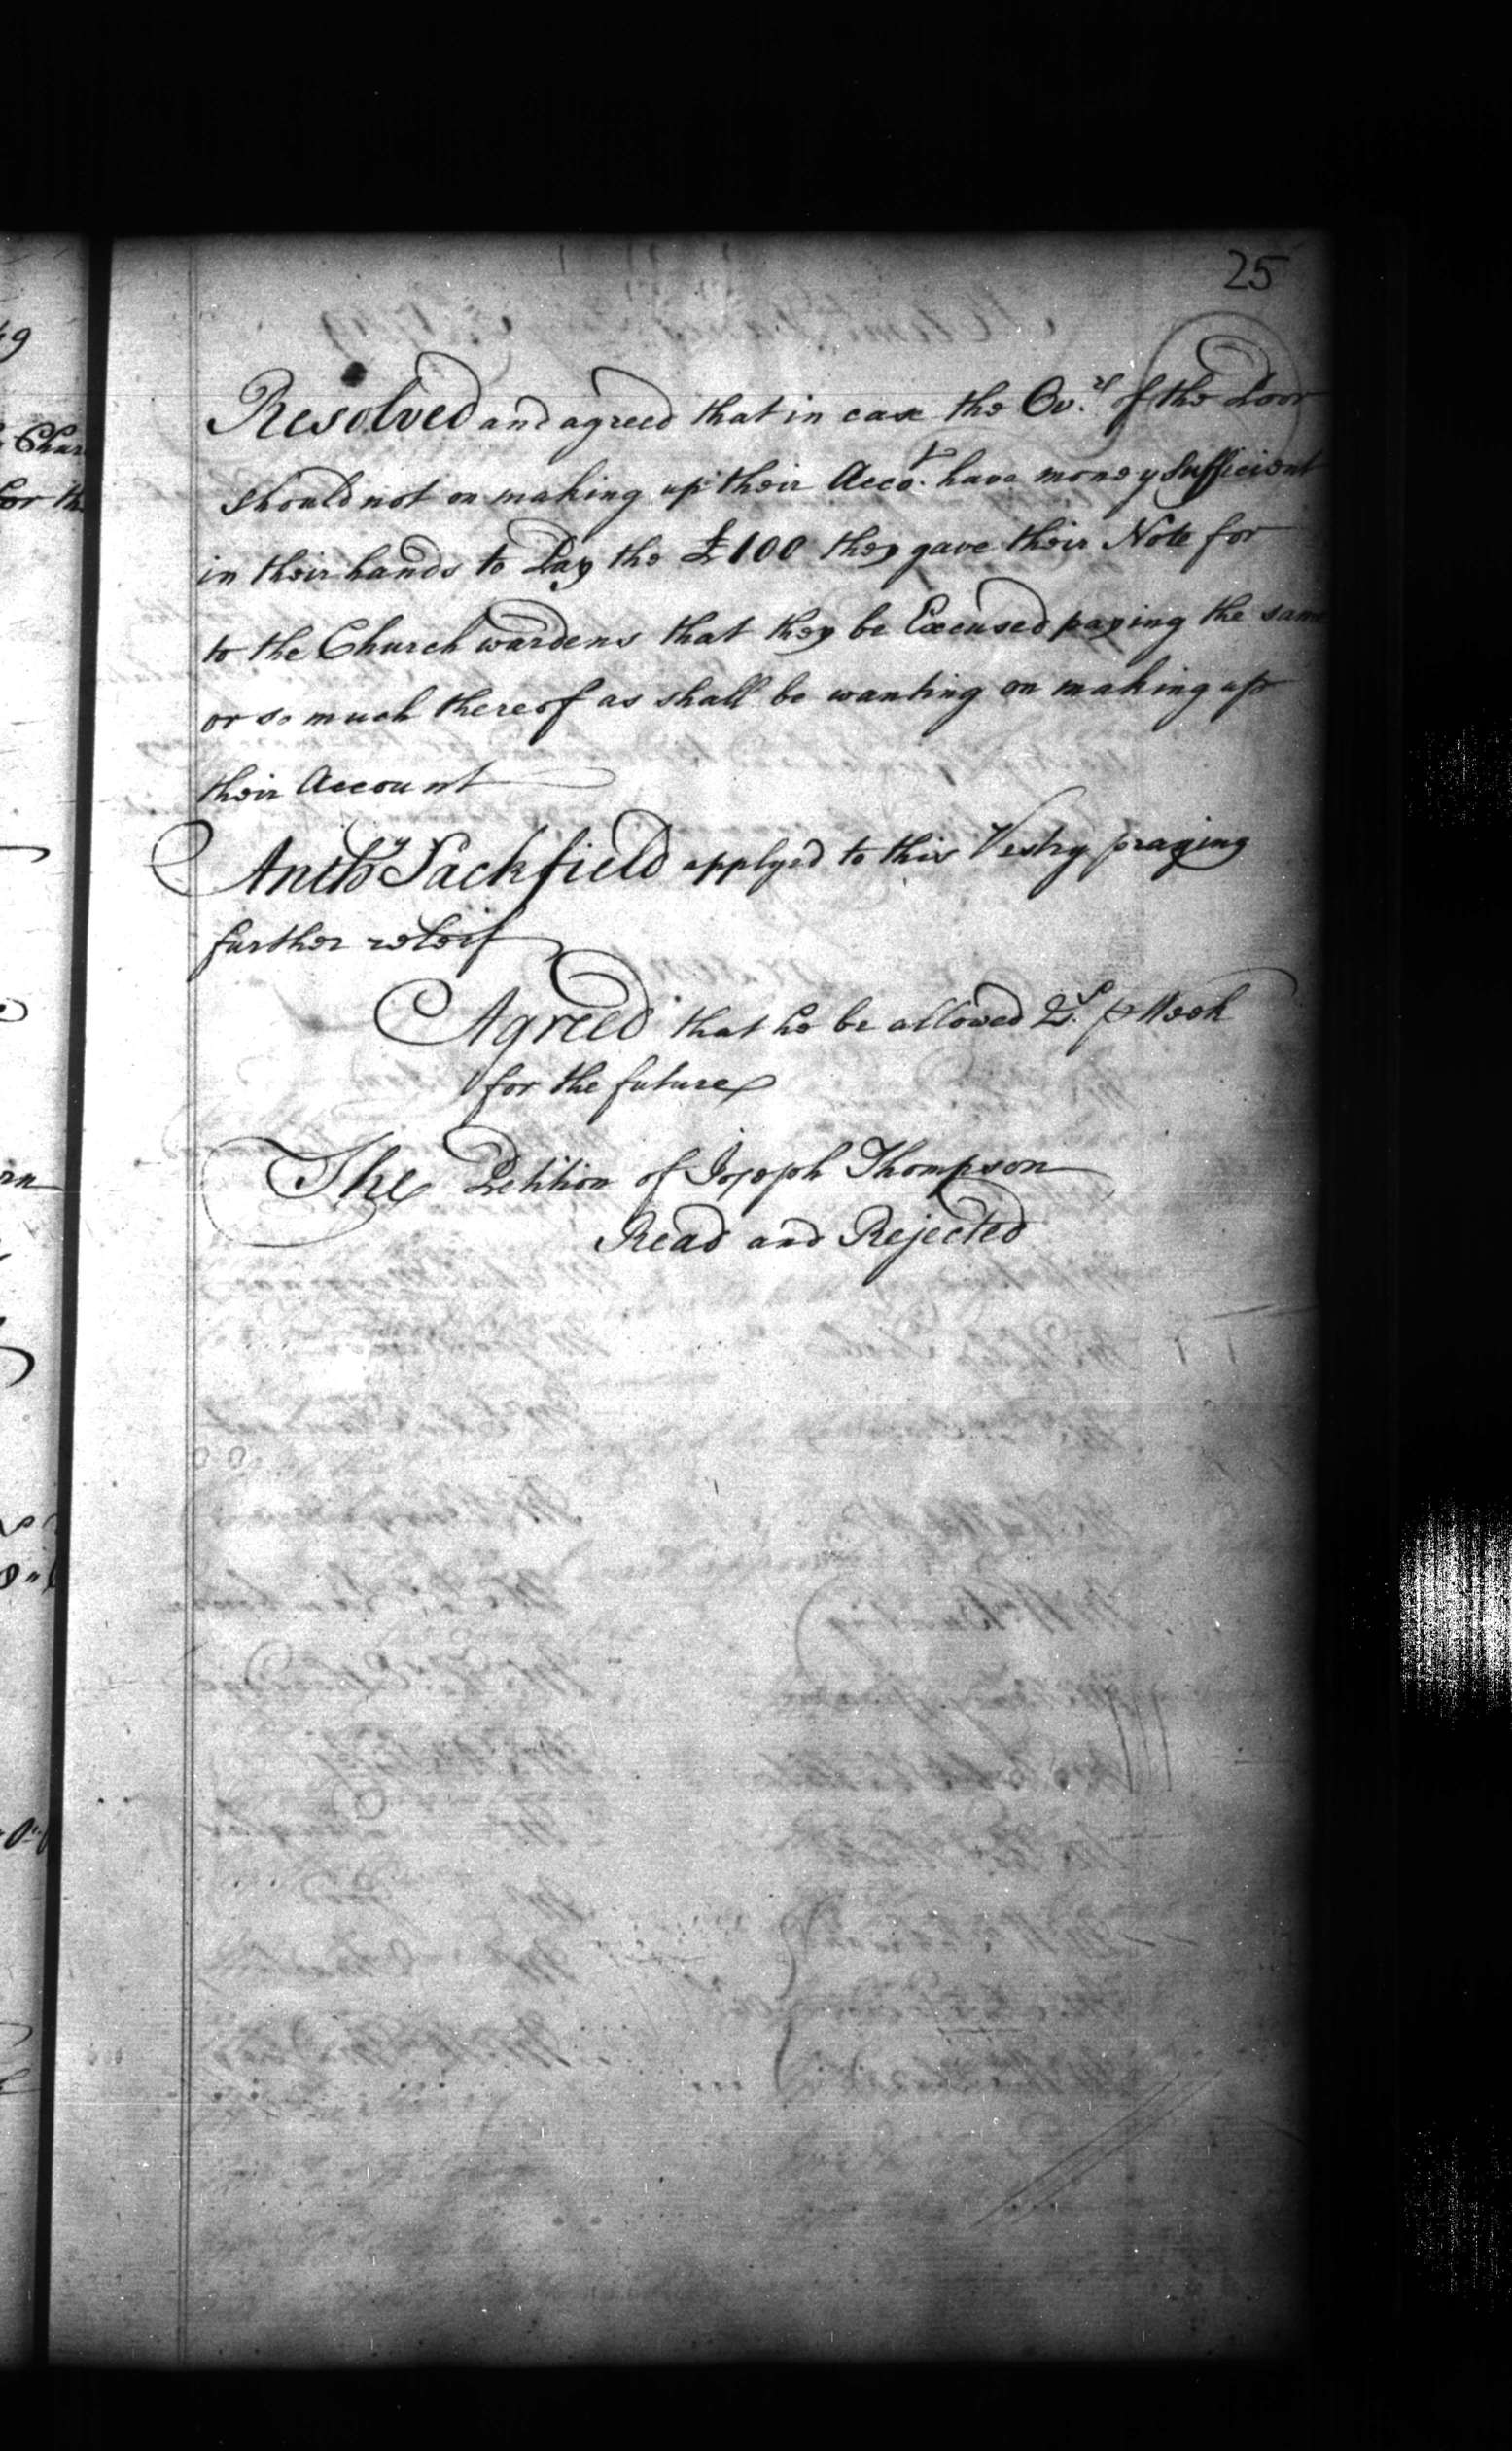 25
Resolved and agreed that in case the Ov.rs of the Poor
should not on making up their Acco.t have money Sufficient
in their hands to Pay the £100 they gave their Note for
to the Church wardens that they be Excused paying the same
or so much thereof as shall be wanting on making up
their Account
Antho Sackfield applyed to this Vestry praying
further releif
Agreed that he be allowed 2s. p Week
for the future
The Petition of Joseph Thompson
Read and Rejected